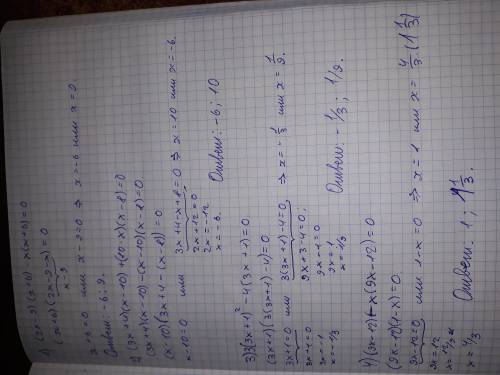 1) (2x-9)(x+6) - x(x+6) = 0
(x+6)(2x-9-x) = 0
x-9
x+6=0 или x-9=0 ⇒ x=-6 или x=9.
Ответ: -6; 9.
2) (3x+4)(x-10)+(10-x)(x-8)=0
(3x+4)(x-10)-(x-10)(x-8)=0.
(x-10)(3x+4-(x-8))=0
x-10=0 или 3x+4-x+8=0 ⇒ x=10 или x=-6.
2x+12=0
2x=-12
x=-6.
Ответ: -6; 10
3) 3(3x+1)² - 4(3x+1)=0
(3x+1)(3(3x+1)-4)=0
3x+1=0 или 3(3x+1)-4=0 ⇒ x=-1/3 или x=1/9.
3x+1=0 9x+3-4=0;
3x=-1 9x-1=0
x=-1/3 9x=1
x=1/9
Ответ: -1/3; 1/9.
4) (9x-12)-x(9x-12)=0
(9x-12)(1-x)=0.
9x-12=0 или 1-x=0 ⇒ x=1 или x=4/3 (1 1/3)
9x=12
x=12/9
x=4/3
Ответ: 1; 1 1/3.